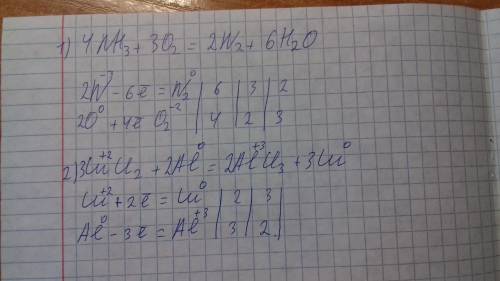 1) 4NH₃ + 3O₂ = 2N₂ + 6H₂O
2N⁻³ - 6ē = N₂⁰ | 6 | 3 | 2
2O⁰ + 4ē O₂⁻² | 4 | 2 | 3
2) 3Cu⁺²Cl₂ + 2Al⁰ = 2Al⁺³Cl₃ + 3Cu⁰
Cu⁺² + 2ē = Cu⁰ | 2 | 3
Al⁰ - 3ē = Al⁺³ | 3 | 2 |